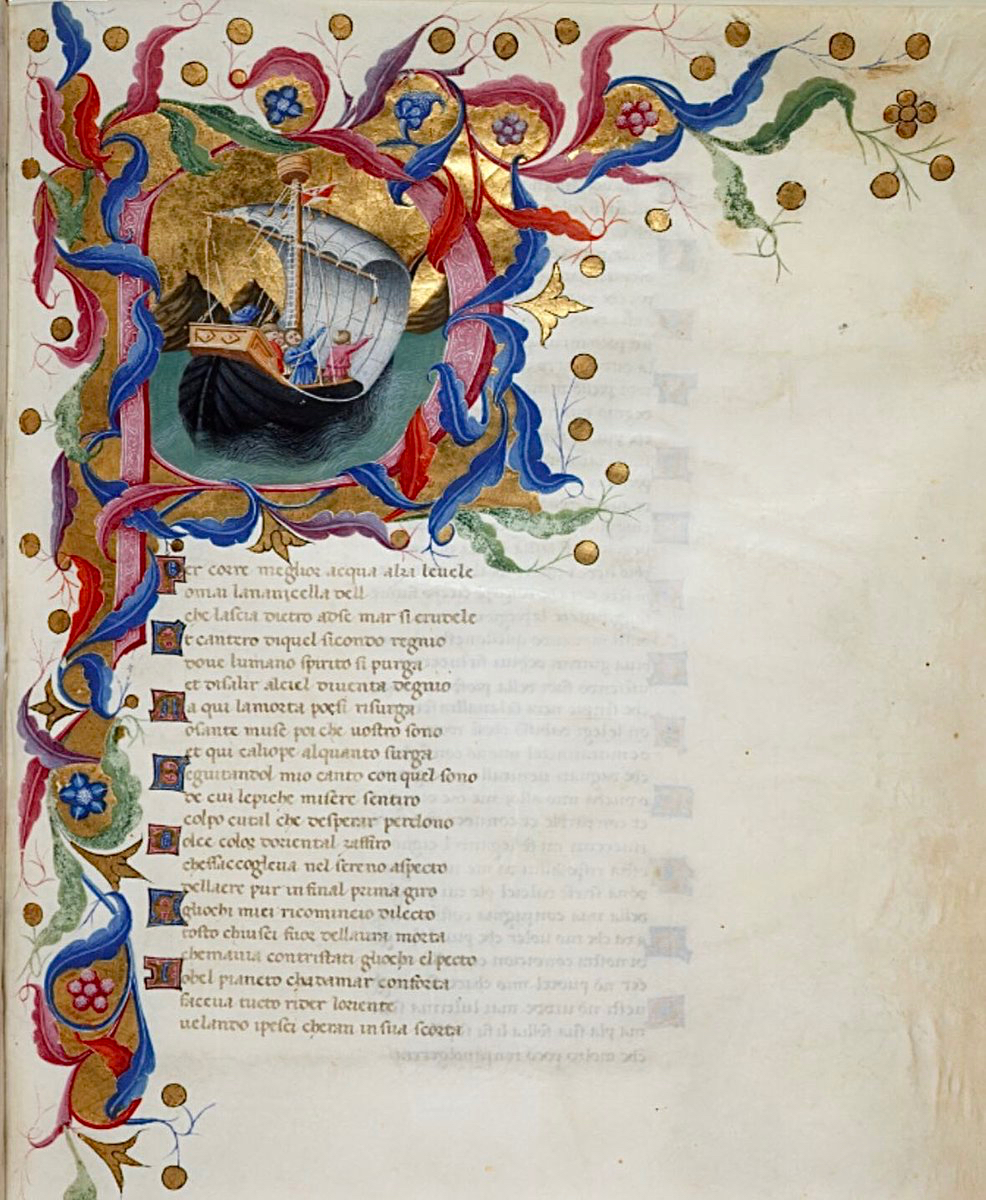 Per corre meglior acqua alza leuele
omai lanauicella dell
che lascia dietro adse mar si crudele
Et cantero diquel sicondo regnio
doue lumano spirito si purga
et disalir alciel diuenta degnio
Ma qui lamorta poesi risurga
osante muse poi che uostro sono
et qui caliope alquanto surga
Seguitandol mio canto con quel sono
de cui lepiche misere sentiro
colpo cutal che desperar perdono
Dolce color doriental zaffiro
chessaccoglieua nel sereno aspecto
dellaere pur infinal prima giro
Agliochi miei ricomincio dilecto
tosto chiusci fuor dellaura morta
chemauia contristati gliochi elpecto
Lobel pianeto chadamar conforta
faceua tucto rider loriente
uelando ipesci cheran insua scorta